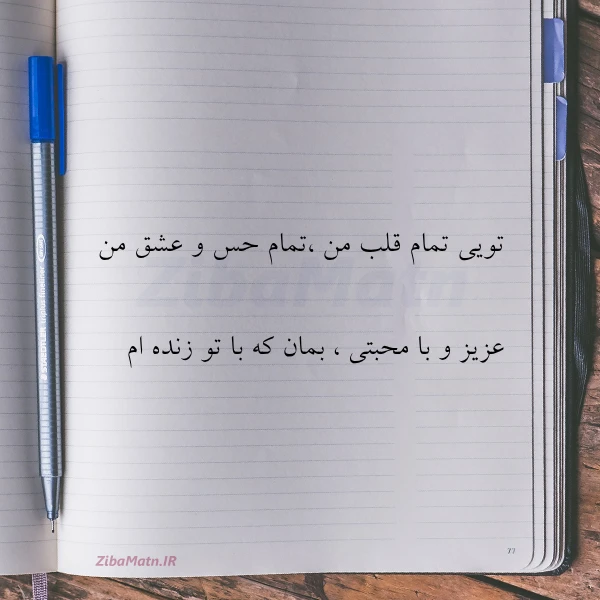 تویی تمام قلب من ،تمام حس و عشق من
ZibaMatn
عزیز و با محبتی ، بمان که با تو زنده ام
ZibaMatn.IR
77